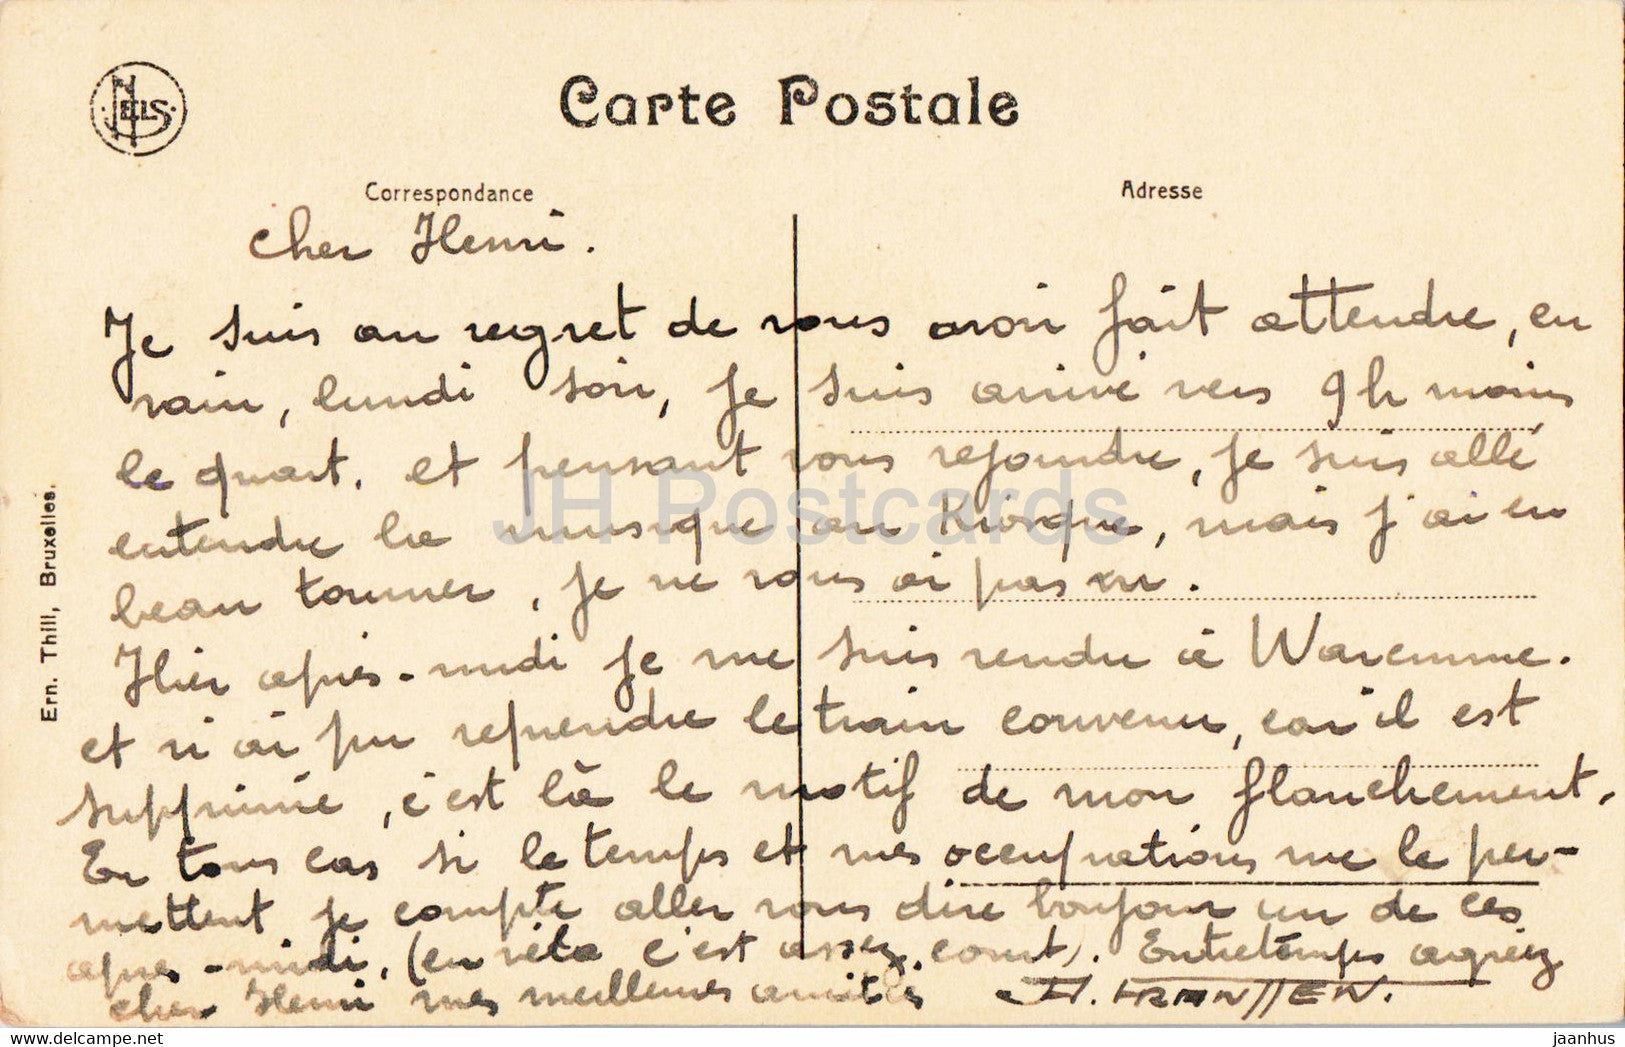 NELS
Carte Postale
Correspondance
Adresse
Ern. Thill, Bruxelles.
cher Henri.
Je suis au regret de vous avoir fait attendre, en
vain, lundi soir, je suis arrivé vers 9h moins
le quart. et pensant vous rejoindre, je suis allé
entendre la musique au Kiosque, mais j'ai eu
beau tourner, je ne vous ai pas vu.
Hier après-midi je me suis rendu à Waremme.
et n'ai pu reprendre le train convenu, car il est
supprimé, c'est là le motif de mon flanchement.
En tous cas si le temps et mes occupations me le per-
mettent je compte aller vous dire bonjour un de ces
après-midi, (en vélo c'est assez court). Entretemps agréez
cher Henri mes meilleures amitiés H. FRANSSEN.
JH Postcards
www.hippostcard.com/store/jh-postcards
jaanhus